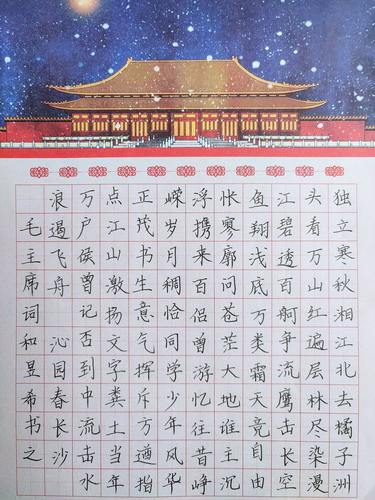 独立寒秋湘江北去橘子洲
头看万山红遍层林尽染漫
江碧透百舸争流鹰击长空
鱼翔浅底万类霜天竞自由
怅寥廓问苍茫大地谁主沉
浮携来百侣曾游忆往昔峥
嵘岁月稠恰同学少年风华
正茂书生意气挥斥方遒指
点江山激扬文字粪土当年
万户侯曾记否到中流击水
浪遏飞舟 沁园春长沙
毛主席词和昱希书之